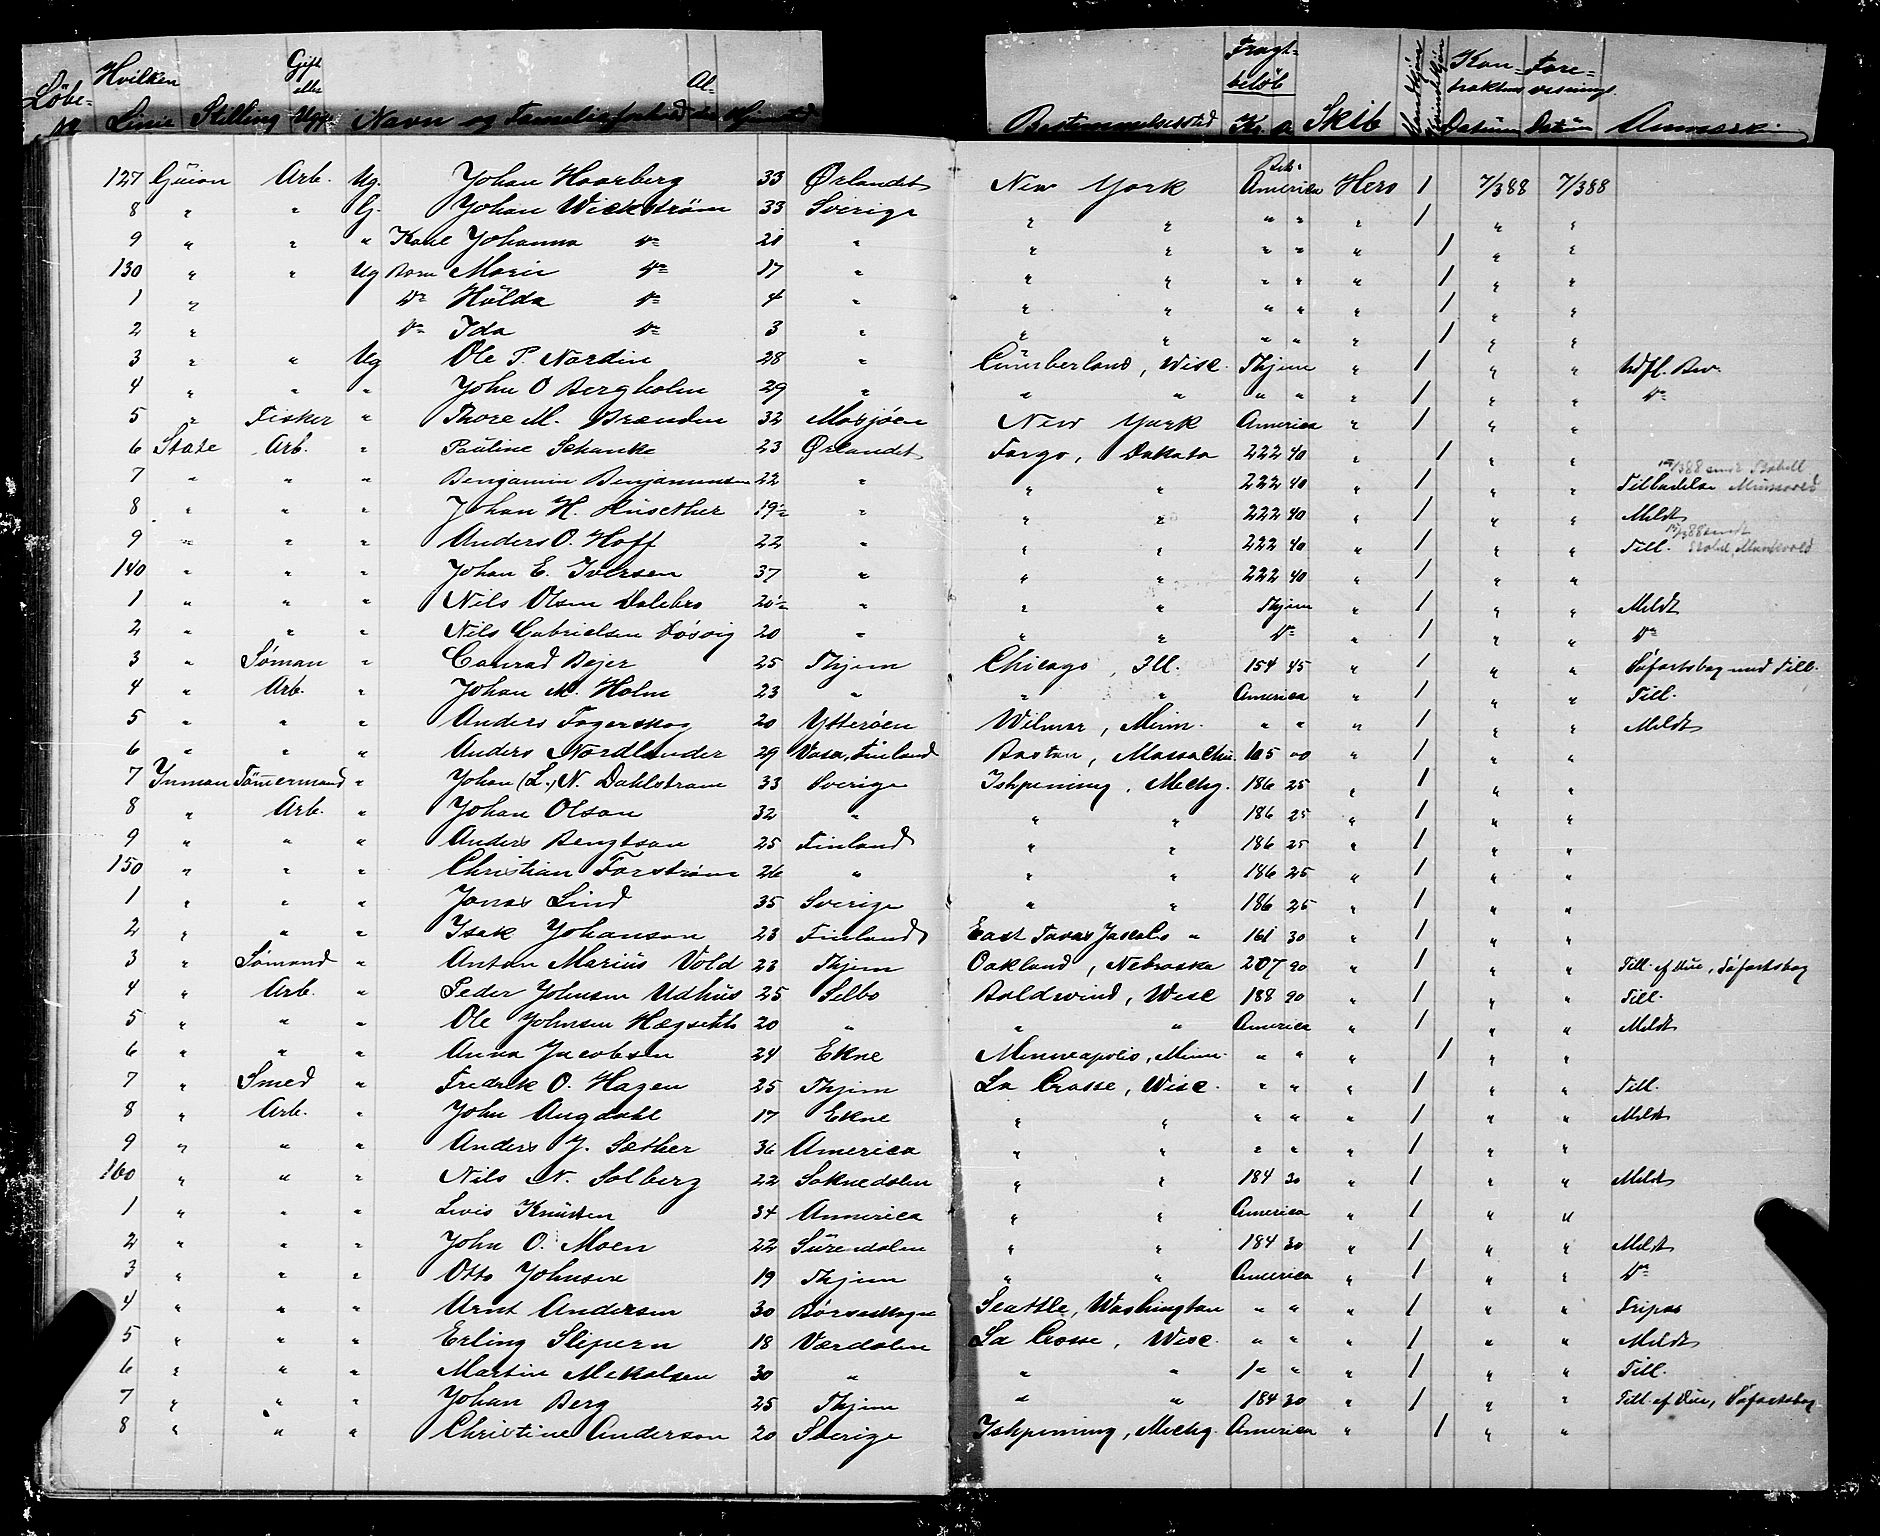 Løbe- № Hvilken Linie Stilling Gift eller Ugft Navn og Familieforhold Al- der Hjemsted Bestemmelsessted Fragt- beløb Kr. Ø Skib Mandkjøn Kvindekjøn Kon- trakten Datum Fore- visnings Datum Anmærk.
127 Guion Arb. Ug. Johan Haarberg 33 Ørlandet New York Bet. America Hero 1 7/3 88 7/3 88
8 " " G. Johan Wickstrøm 33 Sverige " " " " " 1 " "
9 " " " Kone Johanna Do 21 " " " " " " 1 " "
130 " " Ug Barn Marie Do 17 " " " " " " 1 " "
1 " Do Hulda Do 4 " " " " " " 1 " "
2 " Do Ida Do 3 " " " " " " 1 " "
3 " " Ug Ole P. Nordin 28 " Cumberland, Wisc. Thjem " 1 " " Udfl. Bev.
4 " " " John O Bergholm 29 " " " " " " 1 " " Do
5 " Fisker " Thore M. Brænden 32 Mosjøen New York America " 1 " "
6 State Arb. " Pauline Schanke 23 Ørlandet Fargo, Dakota 222 40 " 1 " "
7 " " " Benjamin Benjaminsen 22 " " " 222 40 " 1 " " Tilladelse
8 " " " Johan H. Husether 19½ " " " 222 40 " 1 " " Meldt
9 " " " Anders O. Hoff 22 " " " 222 40 " 1 " " Till.
140 " " " Johan E. Iversen 37 " " " 222 40 " 1 " "
1 " " " Nils Olsen Dalebro 20½ " " " Thjem " 1 " " Meldt
2 " " " Nils Gabrielsen Døsvig 20 " " " Do " 1 " " Do
3 " Søman " Conrad Bejer 25 Thjem Chicago, Ill. 154 45 " 1 " " Søfartsbog med Till.
4 " Arb. " Johan M. Holm 23 " " " America " 1 " " Till.
5 " " " Anders Fagerskog 20 Ytterøen Wilmar, Minn. " " " 1 " " Meldt
6 " " " Anders Nordlander 29 Vasa, Finland Boston, Massachu 105 00 " 1 " "
7 Inman Tømmermand " Johan (L.) N. Dahlstrom 33 Sverige Ishpeming, Michg. 186 25 " 1 " "
8 " Arb. " Johan Olson 32 " " " 186 25 " 1 " "
9 " " " Anders Bengtson 25 Finland " " 186 25 " 1 " "
150 " " " Christian Forstrøm 26 " " " 186 25 " 1 " "
1 " " " Jonas Lind 35 Sverige " " 186 25 " 1 " "
2 " " " Isak Johanson 23 Finland East Tavas " 161 30 " 1 " "
3 " Sømand " Anton Marius Vold 23 Thjem Oakland, Nebraska 207 90 " 1 " " Till. af Due, Søfartsbog
4 " Arb. " Peder Johnsen Udhus 25 Selbo Baldwind, Wisc 188 90 " 1 " " Till.
5 " " " Ole Johnsen Hægseth 20 " " " America " 1 " " Meldt
6 " " " Anna Jacobsen 24 Ekne Minneapolis, Minn. " " " 1 " "
7 " Smed " Fredrik O. Hagen 25 Thjem La Crosse, Wisc. " " " 1 " " Till.
8 " Arb. " John Augdahl 17 Ekne " " " " " 1 " " Meldt
9 " " " Anders J. Sæther 36 America " " " " " 1 " "
160 " " " Nils N. Solberg 22 Soknedalen " " 184 30 " 1 " " Meldt
1 " " " Lovis Knudsen 34 America " " America " 1 " "
2 " " " John O. Moen 22 Surendalen " " 184 30 " 1 " " Meldt
3 " " " Otto Johnsen 19 Thjem " " America " 1 " " Do
4 " " " Arnt Andersen 30 Børseskogn Seattle, Washington " " " 1 " " Fripas
5 " " " Erling Slipern 18 Værdalen La Crosse, Wisc. " " " 1 " " Meldt
6 " " " Martin Mekalsen 30 " " " " " " 1 " " Till.
7 " " " Johan Berg 25 Thjem " " 184 30 " 1 " " Till. af Due, Søfartsbog
8 " " " Christine Anderson 20 Sverige Ishpeming, Michg. America " 1 " "